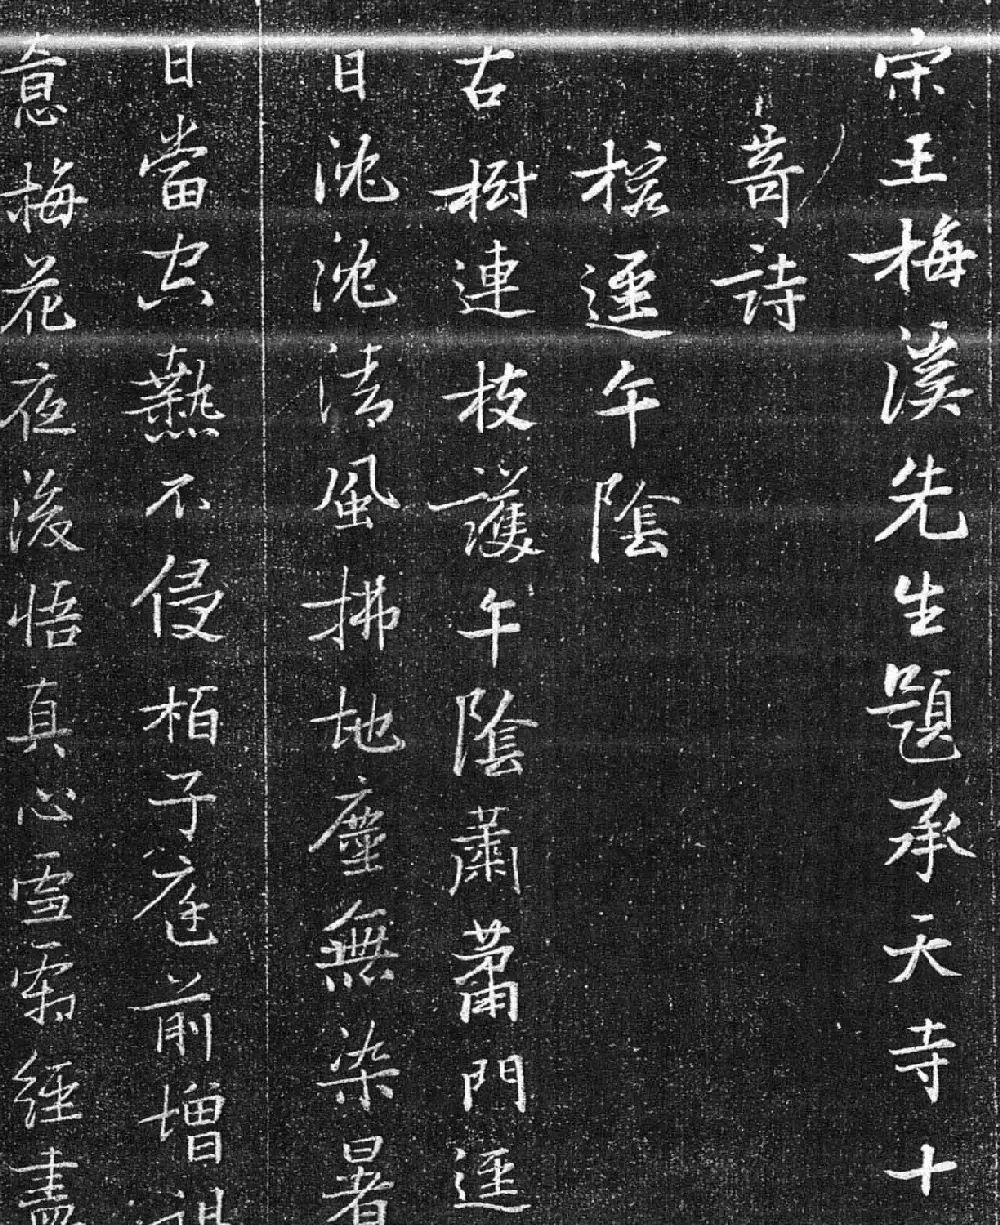 宋王梅溪先生題承天寺十
竒詩
榕逕午陰
古樹連枝護午陰蕭蕭門逕
日沈沈清風拂地塵無染暑
日當空熱不侵栢子庭前增祖
意梅花夜後悟真心雪霜經盡